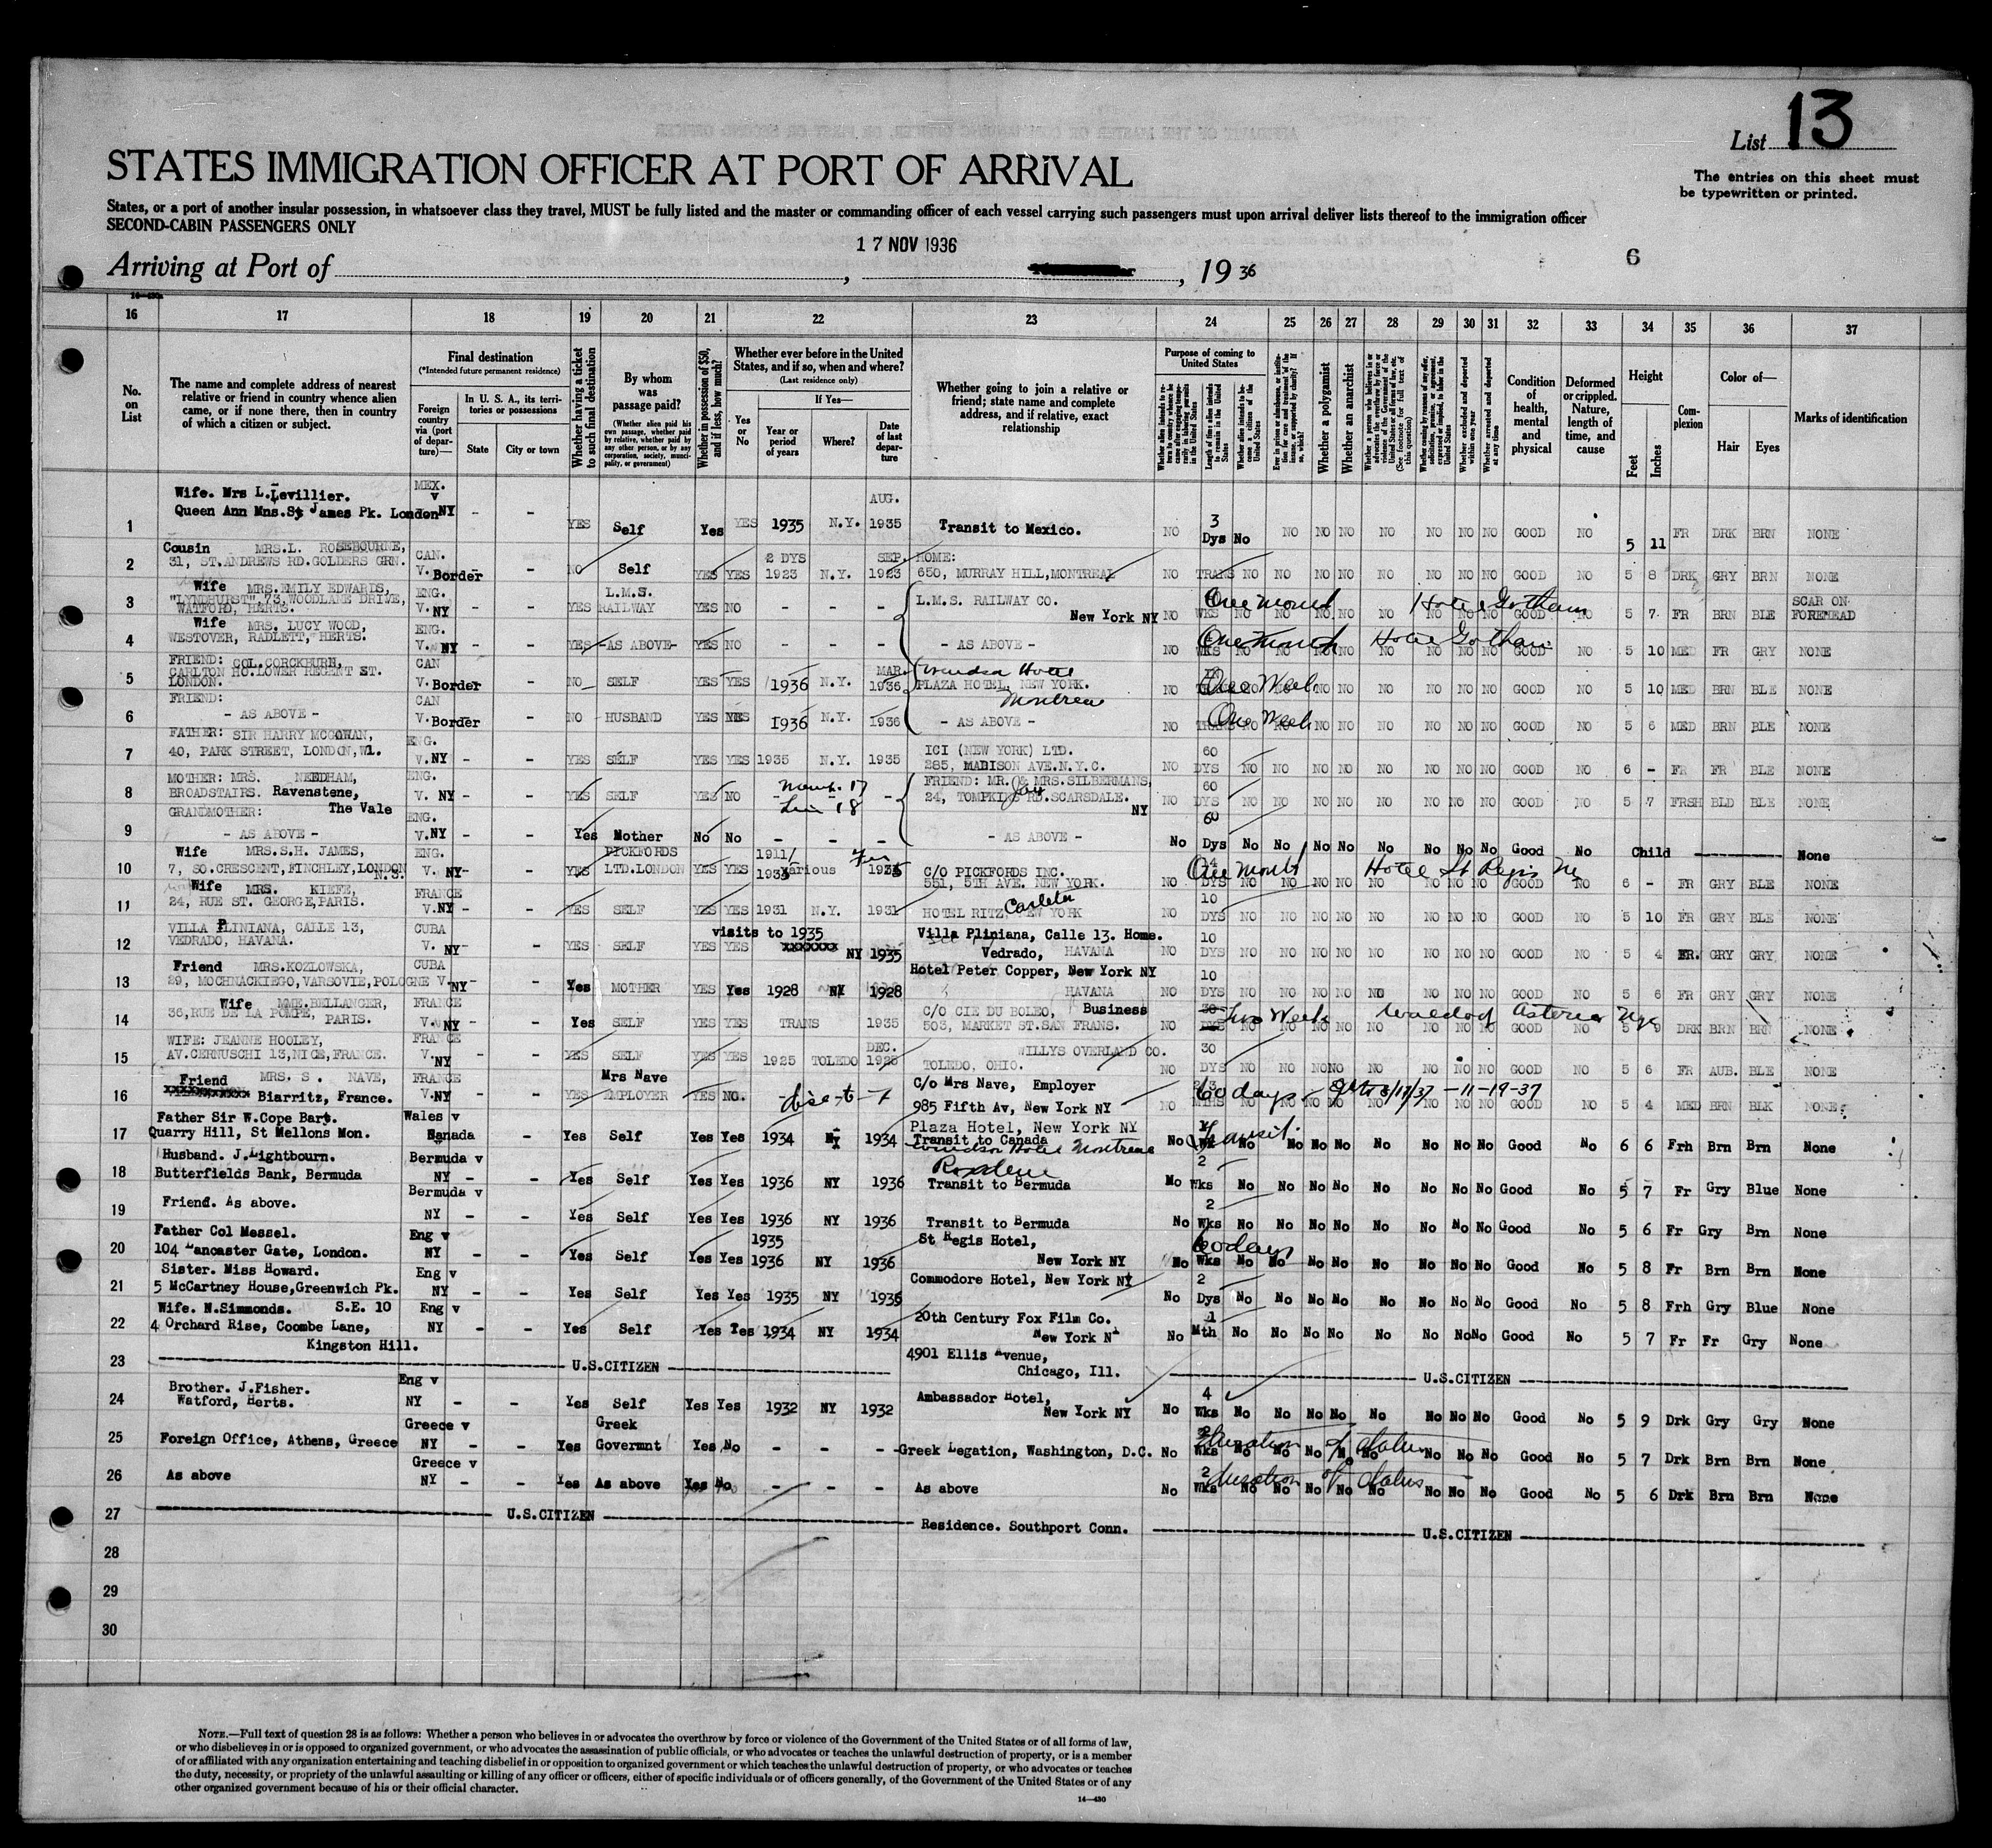 List 13
The entries on this sheet must
be typewritten or printed.
STATES IMMIGRATION OFFICER AT PORT OF ARRIVAL
States, or a port of another insular possession, in whatsoever class they travel, MUST be fully listed and the master or commanding officer of each vessel carrying such passengers must upon arrival deliver lists thereof to the immigration officer
SECOND-CABIN PASSENGERS ONLY
17 NOV 1936
6
Arriving at Port of , , 19 36
16 17 18 19 20 21 22 23 24 25 26 27 28 29 30 31 32 33 34 35 36 37
No. on List
The name and complete address of nearest relative or friend in country whence alien came, or if none there, then in country of which a citizen or subject.
Final destination
(*Intended future permanent residence)
Foreign country via (port of departure)—
In U. S. A., its territories or possessions
State
City or town
Whether having a ticket to such final destination
By whom was passage paid?
(Whether alien paid his own passage, whether paid by relative, whether paid by any other person, or by any corporation, society, municipality, or government)
Whether in possession of $50, and if less, how much?
Whether ever before in the United States, and if so, when and where?
(Last residence only)
Yes or No
If Yes—
Year or period of years
Where?
Date of last departure
Whether going to join a relative or friend; state name and complete address, and if relative, exact relationship
Purpose of coming to United States
Whether a polygamist
Whether an anarchist
Condition of health, mental and physical
Deformed or crippled. Nature, length of time, and cause
Height
Feet
Inches
Complexion
Color of—
Hair
Eyes
Marks of identification
1 Wife. Mrs L. Levillier. MEX. v AUG.
Queen Ann Mns. St James Pk. London NY - - YES Self Yes YES 1935 N.Y. 1935 Transit to Mexico. NO 3 Dys No NO NO NO NO NO NO NO GOOD NO 5 11 FR DRK BRN NONE
2 Cousin MRS.L. ROSEBOURNE, CAN. 2 DYS SEP. HOME:
31, ST.ANDREWS RD.GOLDERS GRN. V. Border - - NO Self YES YES 1923 N.Y. 1923 650, MURRAY HILL, MONTREAL NO TRANS NO NO NO NO NO NO NO NO GOOD NO 5 8 DRK GRY BRN NONE
3 Wife MRS.EMILY EDWARDS, ENG. L.M.S. L.M.S. RAILWAY CO. One month Hotel Gotham SCAR ON
"LYNDHURST", 73, WOODLANE DRIVE, WATFORD, HERTS. V. NY - - YES RAILWAY YES NO - - - New York NY NO WKS NO NO NO NO NO NO NO NO GOOD NO 5 7 FR BRN BLE FOREHEAD
4 Wife MRS. LUCY WOOD, ENG. One month Hotel Gotham
WESTOVER, RADLETT, HERTS. V. NY - - YES -AS ABOVE- YES NO - - - - AS ABOVE - NO WKS NO NO NO NO NO NO NO NO GOOD NO 5 10 MED FR GRY NONE
5 FRIEND: COL.CORCKBURN, CAN MAR. Windsor Hotel
CARLTON HO.LOWER REGENT ST. LONDON. V. Border - NO SELF YES YES 1936 N.Y. 1936 PLAZA HOTEL, NEW YORK. Montreal One Week NO NO NO NO NO NO NO NO GOOD NO 5 10 MED BRN BLE NONE
6 FRIEND: CAN
- AS ABOVE - V. Border - NO HUSBAND YES YES 1936 N.Y. 1936 - AS ABOVE - NO TRANS One Week NO NO NO NO NO NO NO GOOD NO 5 6 MED BRN BLE NONE
7 FATHER: SIR HARRY MCGOWAN, ENG. ICI (NEW YORK) LTD. 60
40, PARK STREET, LONDON, W1. V. NY - - YES SELF YES YES 1935 N.Y. 1935 285, MADISON AVE.N.Y.C. NO DYS NO NO NO NO NO NO NO NO GOOD NO 6 - FR FR BLE NONE
8 MOTHER: MRS. NEEDHAM, ENG. FRIEND: MR. & MRS.SILBERMANS, 60
BROADSTAIRS. Ravenstene, The Vale V. NY - - YES SELF YES NO - - 24, TOMPKINS RD.SCARSDALE. NY NO DYS NO NO NO NO NO NO NO NO GOOD NO 5 7 FRSH BLD BLE NONE
9 GRANDMOTHER: ENG. 60
- AS ABOVE - V. NY - - Yes Mother No No - - - - AS ABOVE - No Dys No No No No No No No No Good No Child None
10 Wife MRS.S.H. JAMES, ENG. PICKFORDS 1911/ 14 One Month Hotel St Regis NY
7, SO.CRESCENT, FINCHLEY, LONDON N.3. V. NY - - YES LTD.LONDON YES YES various C/O PICKFORDS INC. 551, 5TH AVE. NEW YORK. NO DYS NO NO NO NO NO NO NO NO GOOD NO 6 - FR GRY BLE NONE
11 Wife MRS. KIEFE, FRANCE 10
24, RUE ST. GEORGE, PARIS. V. NY - - YES SELF YES YES 1931 N.Y. 1931 HOTEL RITZ Carlton NEW YORK NO DYS NO NO NO NO NO NO NO NO GOOD NO 5 10 FR GRY BLE NONE
12 VILLA PLINIANA, CALLE 13, CUBA visits to 1935 Villa Pliniana, Calle 13. Home. 10
VEDRADO, HAVANA. V. NY - - YES SELF YES YES XXXXXXX NY 1935 Vedrado, HAVANA NO DYS NO NO NO NO NO NO NO NO GOOD NO 5 4 FR. GRY GRY NONE
13 Friend MRS.KOZLOWSKA, CUBA Hotel Peter Copper, New York NY 10
29, MOCHNACKIEGO, VARSOVIE, POLOGNE V. NY - - Yes MOTHER YES Yes 1928 NY 1928 HAVANA NO DYS NO NO NO NO NO NO NO NO GOOD NO 5 6 FR GRY GRY NONE
14 Wife MME.BELLANGER, FRANCE C/O CIE DU BOLEO, Business 30 Two Weeks Waldorf Astoria NYC
36, RUE DE LA POMPE, PARIS. V. NY - - Yes SELF YES YES TRANS 1935 503, MARKET ST.SAN FRANS. NO DYS NO NO NO NO NO NO NO NO GOOD NO 5 9 DRK BRN BRN NONE
15 WIFE: JEANNE HOOLEY, FRANCE DEC. WILLYS OVERLAND CO. 30
AV.CERNUSCHI 13, NICE, FRANCE. V. NY - - YES SELF YES YES 1925 TOLEDO 1925 TOLEDO, OHIO. NO DYS NO NO NO NO NO NO NO NO GOOD NO 5 6 FR AUB. BLE NONE
16 Friend MRS. S. NAVE, FRANCE Mrs Nave C/o Mrs Nave, Employer 60 days 11-19-37
Biarritz, France. V. NY - - YES EMPLOYER YES NO. - 985 Fifth Av, New York NY NO MTHS NO NO NO NO NO NO NO NO GOOD NO 5 4 MED BRN BLK NONE
17 Father Sir W.Cope Bart. Wales v Plaza Hotel, New York NY
Quarry Hill, St Mellons Mon. Canada - Yes Self Yes Yes 1934 NY 1934 Transit to Canada Windsor Hotel Montreal No Transit No No No No No No No No Good No 6 6 Frh Brn Brn None
18 Husband. J.Lightbourn. Bermuda v 2
Butterfields Bank, Bermuda NY - - Yes Self Yes Yes 1936 NY 1936 Transit to Bermuda No Wks No No No No No No No No Good No 5 7 Fr Gry Blue None
19 Friend. As above. Bermuda v 2
NY - - Yes Self Yes Yes 1936 NY 1936 Transit to Bermuda No Wks No No No No No No No No Good No 5 6 Fr Gry Brn None
20 Father Col Messel. Eng v 1935 St Regis Hotel, 60 days
104 Lancaster Gate, London. NY - - Yes Self Yes Yes 1936 NY 1936 New York NY No Wks No No No No No No No No Good No 5 8 Fr Brn Brn None
21 Sister. Miss Howard. Eng v Commodore Hotel, New York NY 2
5 McCartney House, Greenwich Pk. S.E. 10 NY - - Yes Self Yes Yes 1935 NY 1936 No Dys No No No No No No No No Good No 5 8 Frh Gry Blue None
22 Wife. N.Simmonds. Eng v 20th Century Fox Film Co. 1
4 Orchard Rise, Coombe Lane, Kingston Hill. NY - - Yes Self Yes Yes 1934 NY 1934 New York No Mth No No No No No No No No Good No 5 7 Fr Fr Gry None
23 U.S.CITIZEN 4901 Ellis Avenue, Chicago, Ill. U.S.CITIZEN
24 Brother. J.Fisher. Eng v Ambassador Hotel, 4
Watford, Herts. NY - - Yes Self Yes Yes 1932 NY 1932 New York NY No Wks No No No No No No No No Good No 5 9 Drk Gry Gry None
25 Greece v Greek duration of status
Foreign Office, Athens, Greece NY - - Yes Govermnt Yes No - - - Greek Legation, Washington, D.C. No Wks No No No No No No No No Good No 5 7 Drk Brn Brn None
26 Greece v 2 duration of status
As above NY - - Yes As above Yes No - - - As above No Wks No No No No No No No No Good No 5 6 Drk Brn Brn None
27 U.S.CITIZEN Residence. Southport Conn. U.S.CITIZEN
28
29
30
NOTE.—Full text of question 28 is as follows: Whether a person who believes in or advocates the overthrow by force or violence of the Government of the United States or of all forms of law,
or who disbelieves in or is opposed to organized government, or who advocates the assassination of public officials, or who advocates or teaches the unlawful destruction of property, or is a member
of or affiliated with any organization entertaining and teaching disbelief in or opposition to organized government or which teaches the unlawful destruction of property, or who advocates or teaches
the duty, necessity, or propriety of the unlawful assaulting or killing of any officer or officers, either of specific individuals or of officers generally, of the Government of the United States or of any
other organized government because of his or their official character.
14—430